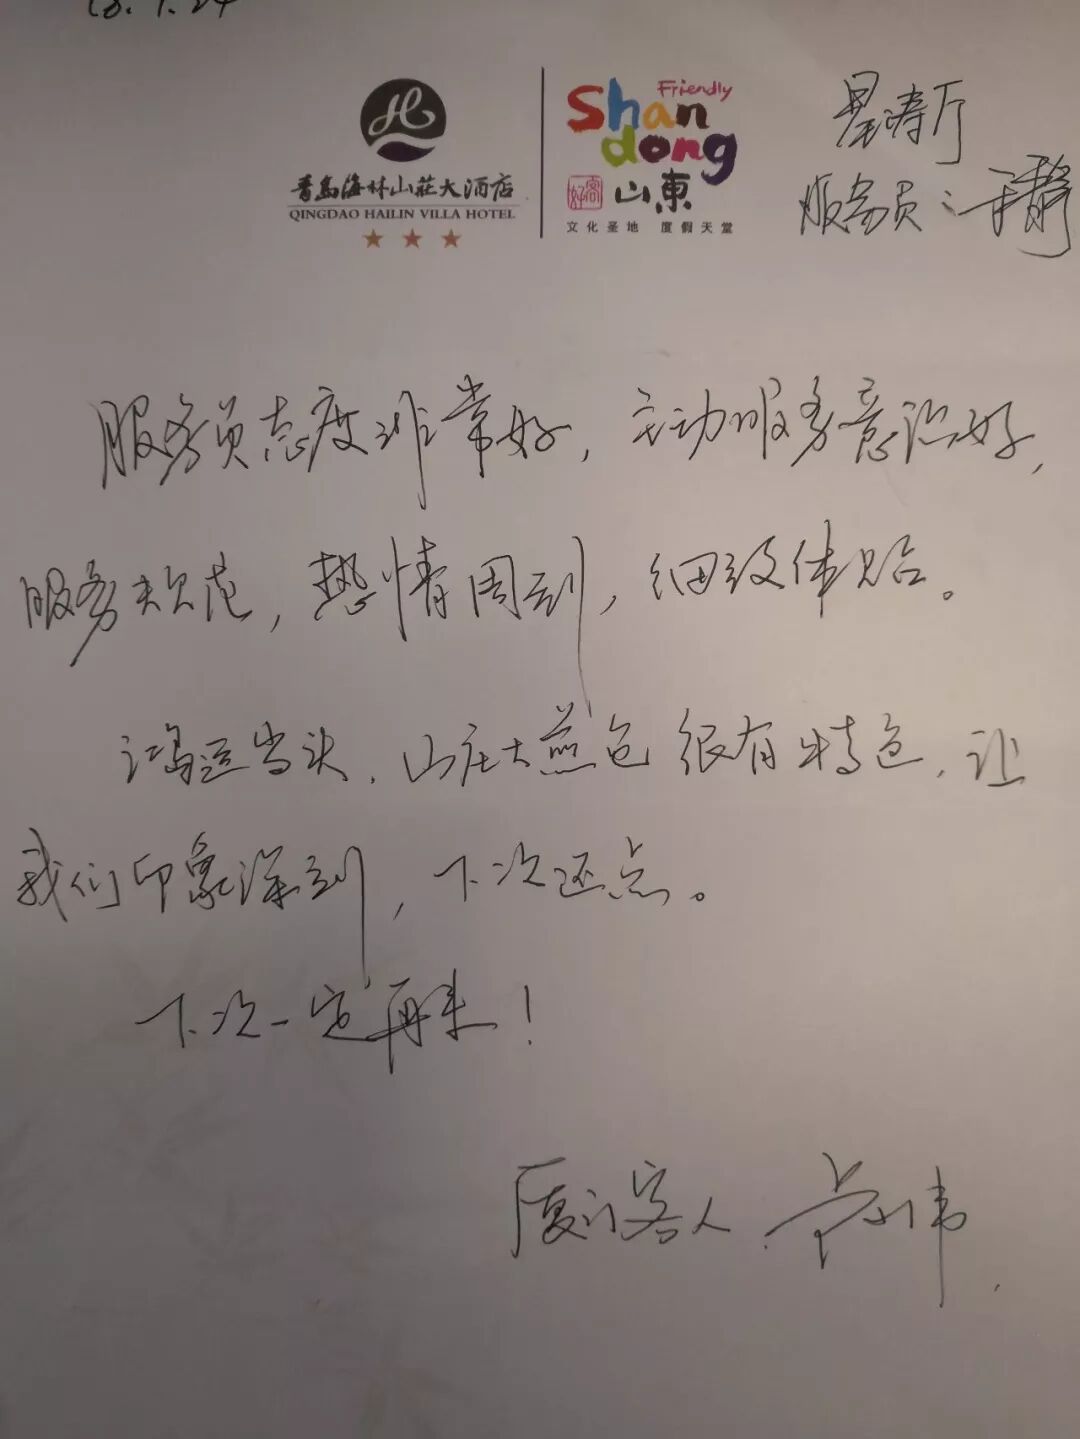 18.7.24
Friendly
Shan
dong
好客
山東
文化圣地 度假天堂
青島海林山莊大酒店
QINGDAO HAILIN VILLA HOTEL
涛厅
服务员：于静
服务员态度非常好，主动服务意识好，
服务规范，热情周到，细致体贴。
鸿运当头，山庄大蒸包很有特色，让
我们印象深刻，下次还点。
下次一定再来！
厦门客人